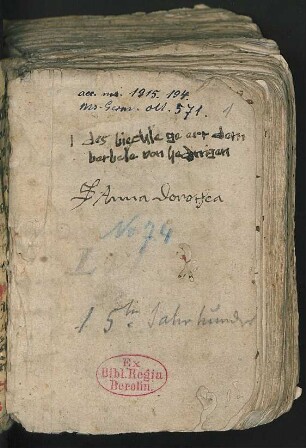 acc. ms. 1915. 194.
Ms. Germ. oct. 571.
1
des biechle ge ert dem
berbele von
Anna Dorothea
No 74
I
15tes Jahrhundert
Ex
Bibl. Regia
Berolin.